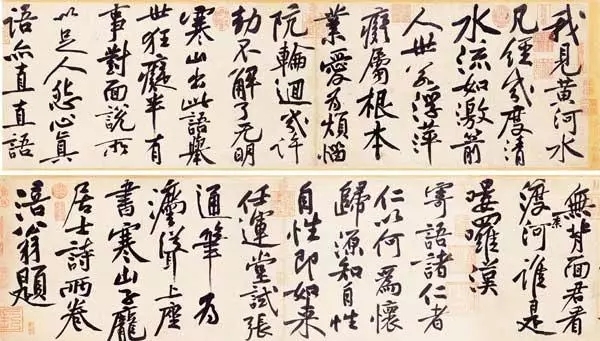 我見黃河水
凡經幾度清
水流如激箭
人世若浮萍
癡屬根本
業愛為煩惱
阬輪迴幾許
劫不解了无明
寒山出此語舉
世狂癡半有
事對面說所
以足人心真
語亦直直語
無背面君看
渡柰河誰是
嘍囉漢
寄語諸仁者
仁以何為懷
歸源知自性
自性即如來
任運堂試張
通筆為
上座
書寒山子龐
居士詩兩卷
涪翁題